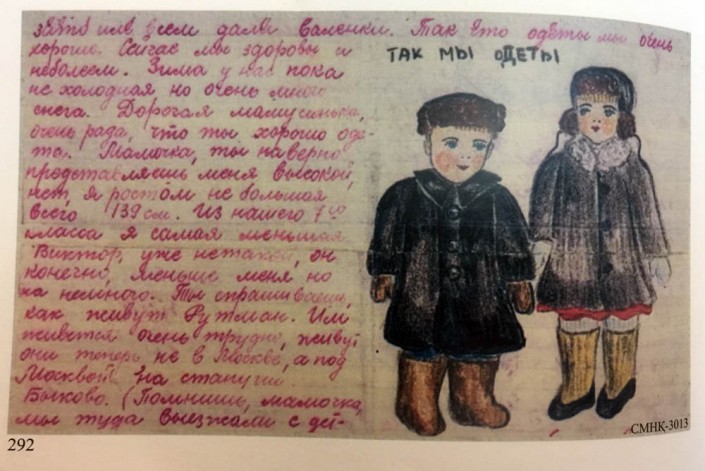 зять или всем дали валенки. Так что одеты мы очень
хорошо. Сейчас мы здоровы и
неболеем. Зима у нас пока
не холодная но очень много
снега. Дорогая мамусинька,
очень рада, что ты хорошо оде-
та. Мамочка, ты наверно
представляешь меня высокой,
нет, я ростом не большая
всего 139 см. Из нашего 7го
класса я самая меньшая.
Виктор, уже нетакой, он
конечно, меньше меня но
на немного. Ты спрашиваешь,
как живут Рутман. Им
живется очень трудно, живут
они теперь не в Москве, а под
Москвой на станции
Быково. (Помнишь, мамочка,
мы туда выезжали с дет-
ТАК МЫ ОДЕТЫ
СМНК-3013
292